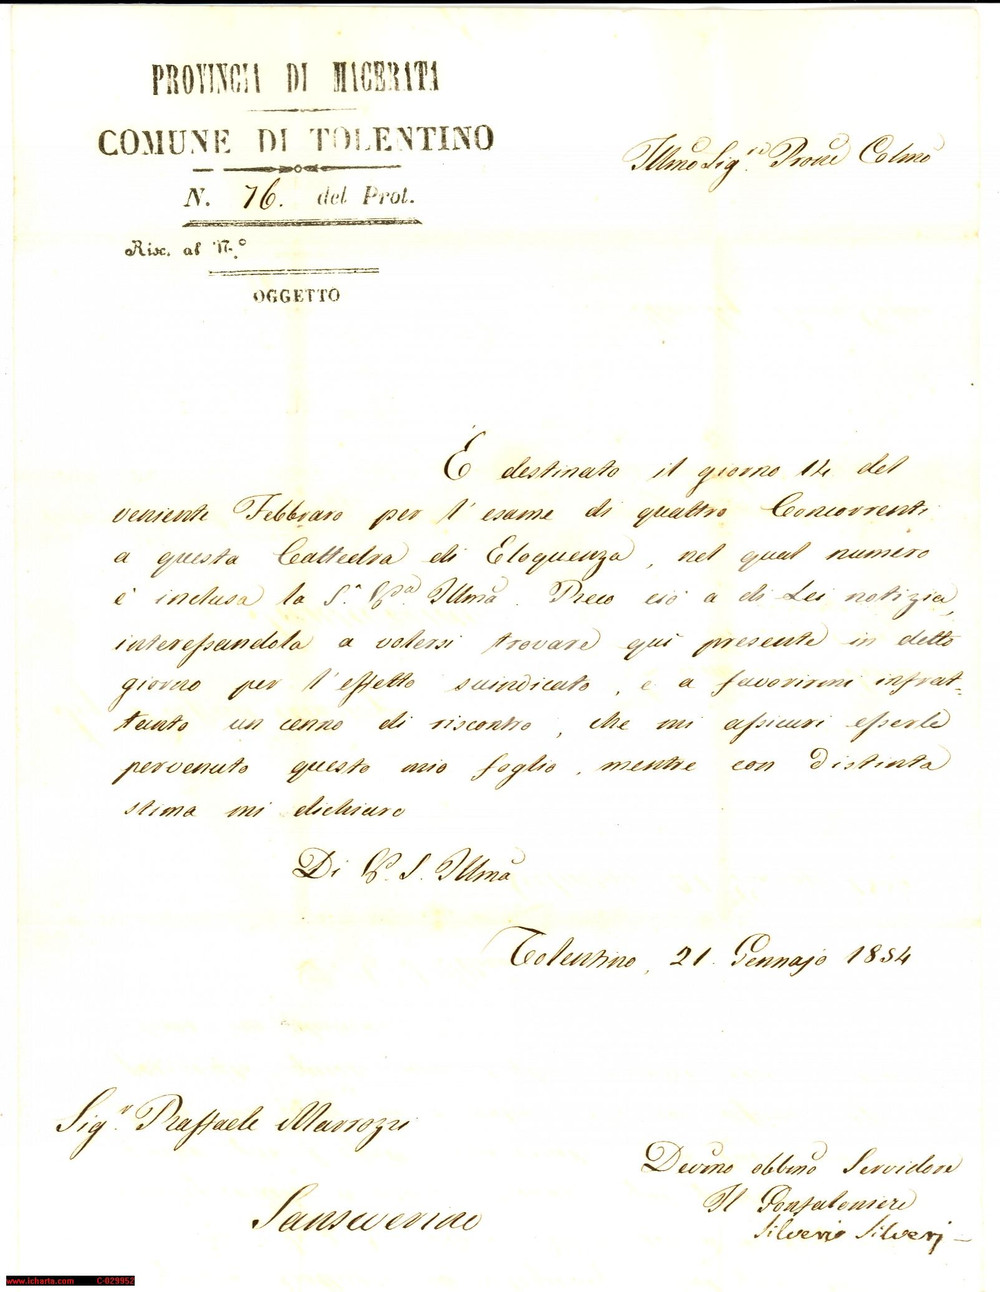 PROVINCIA DI MACERATA
COMUNE DI TOLENTINO
N. 76. del Prot.
Risc. al N.°
OGGETTO
Illmo Sig.re Prone Colmo
È destinato il giorno 14 del
veniente Febbraro per l'esame di quattro Concorrenti
a questa Cattedra di Eloquenza, nel qual numero
è inclusa la S.a V.a Illma. Reco ciò a di Lei notizia,
interessandola a volersi trovare quì presente in detto
giorno per l'effetto suindicato, e a favorirmi infrat-
tanto un cenno di riscontro, che mi assicuri esserle
pervenuto questo mio foglio, mentre con distinta
stima mi dichiaro
Di V. S. Illma
Tolentino, 21 Gennajo 1854
Sig.r Raffaele Marrozzi
Sanseverino
Devmo obbmo Servidore
Il Gonfaloniere
Silverio Silverj
www.icharta.com C-029952